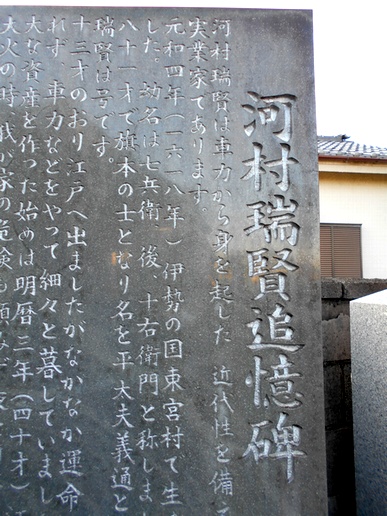 河村瑞賢追憶碑
河村瑞賢は車力から身を起した 近代性を備
実業家であります。
元和四年(一六一八年)伊勢の国東宮村で生
した。幼名は七兵衛 後、十右衛門と称しま
八十一才で旗本の士となり名を平太夫義通と
瑞賢は号です。
十三才のおり江戸へ出ましたがなかなか運命
れず、車力などをやって細々と暮していまし
大な資産を作った始めは明暦三年(四十才)
大火の時、我が家の危険も顧みず